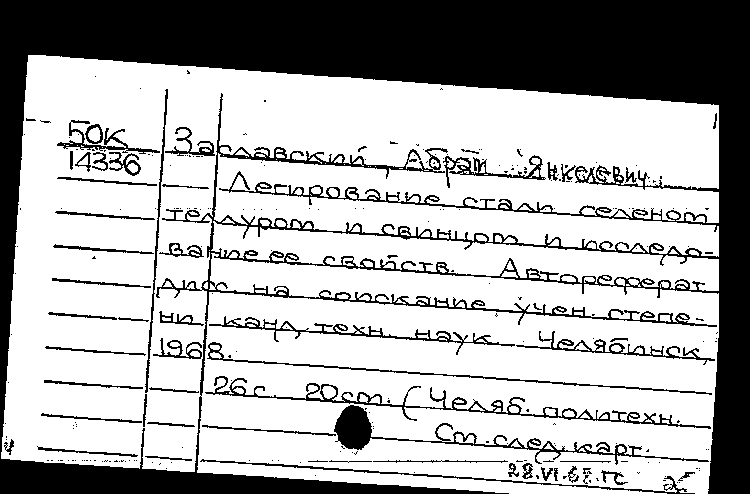 50К
14336
Заславский, Абрам Янкелевич.
Легирование стали селеном,
теллуром и свинцом и исследо-
вание ее свойств. Автореферат
дисс. на соискание учен. степе-
ни канд. техн. наук. Челябинск,
1968.
26 с. 20 см. (Челяб. политехн.
См. след. карт.